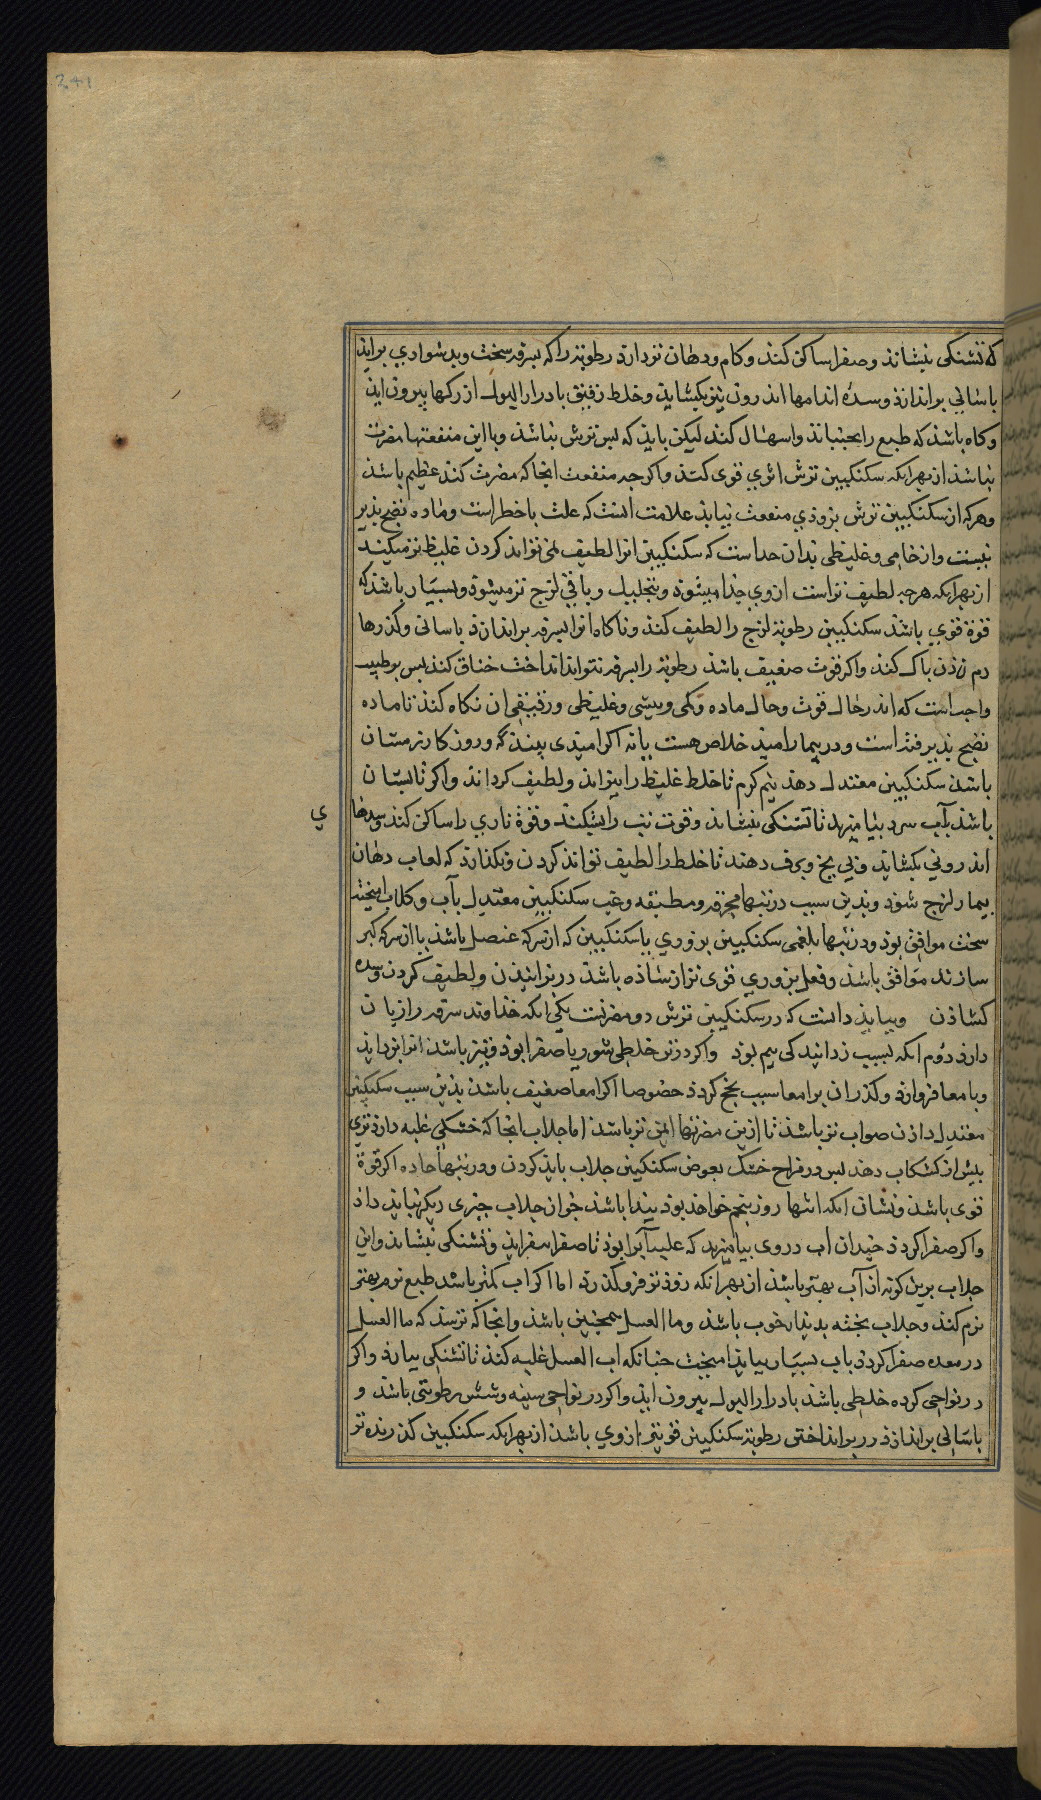 که تشنکی بنشاند و صفرا ساکن کند و کام و دهان تر دارد رطوبة را که بسرفه سخت و بدشواری براید
باسانی براندازد و سده اندامها اندرون نیز بکشاید و خلط رقیق بادرار البول از رکها بیرون اید
و کاه باشد که طبع را بجنباند و اسهال کند لیکن باید که بس ترش نباشد و با این منفعتها مضرت
نباشد از بهر انکه سکنکبین ترش اثری قوی کند و اکرجه منفعت انجا که مضرت کند عظیم باشد
و هرکه از سکنکبین ترش بزودی منفعت نیابد علامت انست که علت با خطر است و ماده نضج بذیر
نیست و از خامی و غلیظی بدان حد است که سکنکبین انرا لطیف نمی تواند کردن غلیظ تر میکند
از بهر انکه هرجه لطیف تر است از وی جدا میشود و بتحلیل و باقی لزج تر میشود و بسیار باشد که
قوة قوی باشد سکنکبین رطوبة لزج را لطیف کند و ناکاه انرا بسرفه براندازد باسانی و کذرها
دم زدن باک کند و اکر قوت ضعیف باشد رطوبة را بسرفه نتواند انداخت خناق کند بس بر طبیب
واجب است که اندر حال قوت و حال ماده و کمی و بیشی و غلیظی و رقیقی ان نکاه کند تا ماده
نضج بذیرفته است و در بیمار امید خلاص هست یا نه اکر امیدی بیند که و روزکار زمستان
باشد سکنکبین معتدل دهد نیم کرم تا خلط غلیظ را ببزاند و لطیف کرداند و اکر تابستان
باشد بآب سرد بیامیزد تا تشنکی بنشاند و قوت تب را بشکند و قوة ناری را ساکن کند و سدها ی
اندرونی بکشاید و بی یخ و برف دهند تا خلط را لطیف تواند کردن و نکذارد که لعاب دهان
بیمار لزج شود و بدین سبب در تبها محرقه و مطبقه و غب سکنکبین معتدل بآب و کلاب امیخته
سخت موافق بود و در تبها بلغمی سکنکبین بزوری یا سکنکبین که از سرکه عنصل باشد یا از سرکه کبر
سازند موافق باشد و فعل بزوری قوی تر از ساده باشد در برانیدن و لطیف کردن و سده
کشادن و بباید دانست که در سکنکبین ترش دو مضرتست یکی انکه خداوند سرفه را زیان
دارد دوم انکه بسبب زدایندکی بیم بود و اکر در تن خلطی شور یا صفرا بود و تیز باشد انرا بزداید
و بامعا فرو ارد و کذر ان بر امعا سبب سحج کردد خصوصا اکر امعا ضعیف باشد بدین سبب سکنکبین
معتدل دادن صواب تر باشد تا از این مضرتها ایمن تر باشد اما جلاب انجا که خشکی غلبه دارد تری
بیش از کشکاب دهد بس در مزاج خشک بعوض سکنکبین جلاب باید کردن و در تبها حاده اکر قوة
قوی باشد و نشان انکه انتها روز بنجم خواهد بود بیدا باشد جز ان جلاب جیزی دیکر نباید داد
و اکر صفرا کردد جندان اب در وی بیامیزند که غلبه آبرا بود تا صفرا نیفزاید و تشنکی بنشاند و این
جلاب برین کونه از آب بهتر باشد از بهر انکه زودتر فرو کذرد اما اکر اب کمتر باشد طبع نرم بهتر
نرم کند و جلاب بخته بدینار خوب باشد و ما العسل همجنین باشد و انجا که ترسند که ما العسل
در معده صفرا کردد باب بسیار بباید امیخت جنانکه اب العسل غلبه کند تا تشنکی نیارد و اکر
در نواحی کرده خلطی باشد بادرار البول بیرون اید و اکر در نواحی سینه و شش رطوبتی باشد و
باسانی براندازد در برانداختن رطوبة سکنکبین قویتر از وی باشد از بهر انکه سکنکبین کذرنده تر